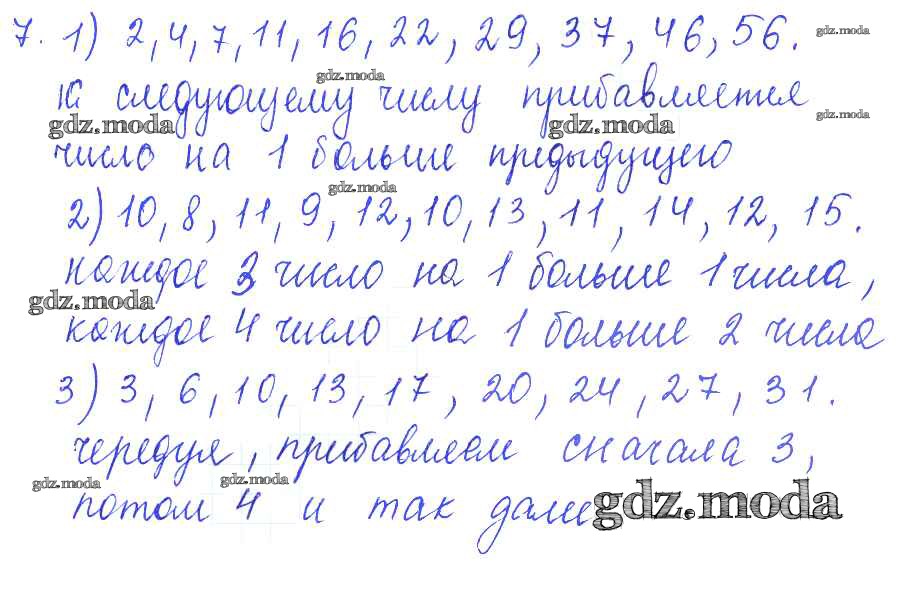 7. 1) 2, 4, 7, 11, 16, 22, 29, 37, 46, 56.
gdz.moda
gdz.moda
К следующему числу прибавляется
gdz.moda
gdz.moda
gdz.moda
число на 1 больше предыдущего
gdz.moda
2) 10, 8, 11, 9, 12, 10, 13, 11, 14, 12, 15.
каждое 3 число на 1 больше 1 числа,
gdz.moda
каждое 4 число на 1 больше 2 числа
3) 3, 6, 10, 13, 17, 20, 24, 27, 31.
чередуя, прибавляем сначала 3,
gdz.moda
gdz.moda
gdz.moda
потом 4 и так далее